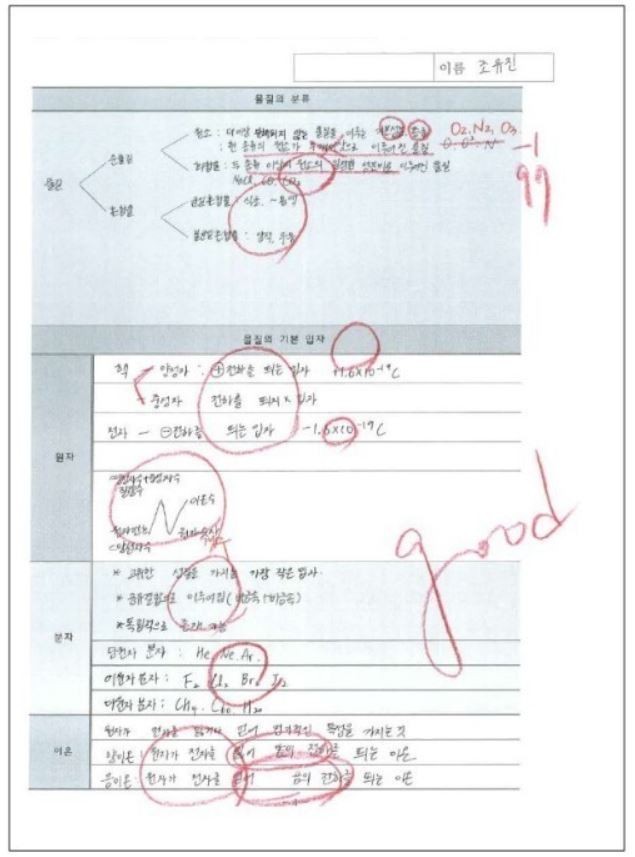 이름 조유진
물질의 분류
원소 : 더이상 분해되지 않는 물질을 이루는 기본성분 물질 O₂, N₂, O₃
: 한 종류의 원소가 이루어진 물질 -1
순물질 화합물 : 두 종류 이상의 원소의 일정한 이루어진 물질 99
물질 NaCl, CO, CO₂
혼합물 균일혼합물 : 식초,
불균일혼합물 : 우유
물질의 기본 입자
핵 양성자 : ⊕전하를 띄는 입자 +1.6×10⁻¹⁹C
중성자 전하를 띄지 × 입자
전자 - ⊖전하를 띄는 입자 -1.6×10⁻¹⁹C
원자
질량수
이온수
good
* 고유한 성질을 가지는 가장 작은 입자
* 공유결합으로 이루어짐(비금속+비금속)
분자 * 독립적으로 존재 가능
단원자 분자 : He, Ne, Ar.
이원자 분자 : F₂ Cl₂ Br₂ I₂
다원자 분자 : CH₄, C₆₀, H₂O
원자가 전자를 잃거나 얻어 전기적인 특성을 가지는 것
이온 양이온 : 원자가 전자를 잃어 양의 전하를 띄는 이온
음이온 : 원자가 전자를 얻어 음의 전하를 띄는 이온